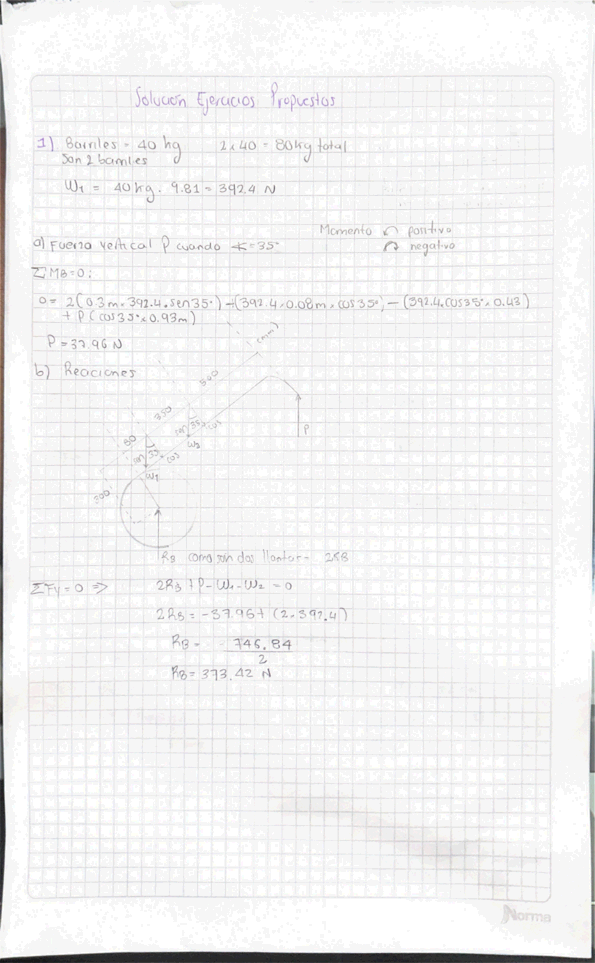 Solución Ejercicios Propuestos
1) Barriles = 40 kg 2x40 = 80kg total
Son 2 barriles
W1 = 40kg · 9.81 = 392.4 N
Momento ↶ positivo
↷ negativo
a) Fuerza vertical P cuando ∢=35°
ΣMB=0:
0 = 2(0.3m·392.4·sen35°) - (392.4×0.08m × cos35°) - (392.4·cos35°×0.43)
+ P(cos35°×0.93m)
P = 37.96 N
b) Reaciones
(mm)
500
350
80
300
35°
cos
W2
35°
cos
W1
P
RB como son dos llantas = 2RB
ΣFy=0 => 2RB + P - W1 - W2 = 0
2RB = -37.96 + (2·392.4)
RB = 746.84
2
RB = 373.42 N
Norma